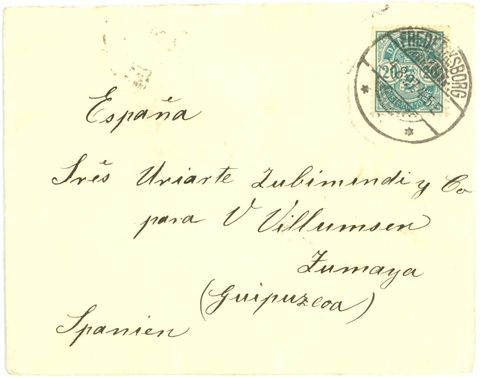 FREDENSBORG
20 20
España
Srês Uriarte Zubimendi y Co
para V Villumsen
Zumaya
(Guipuzcoa)
Spanien